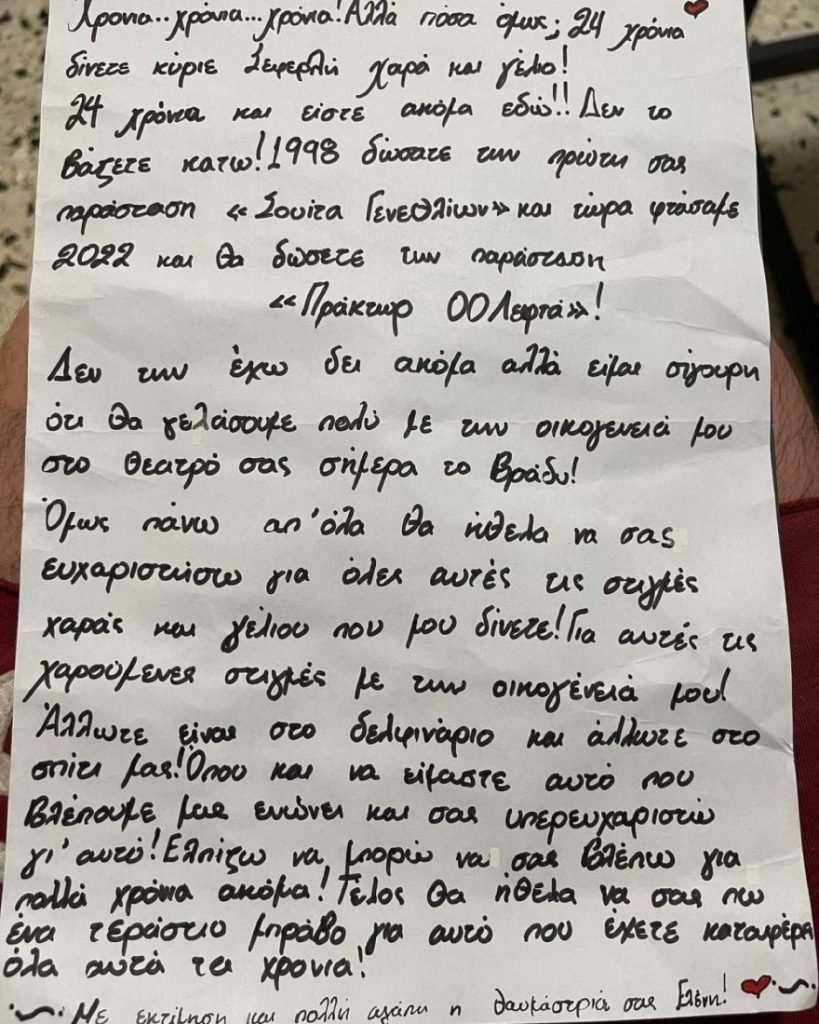 Χρόνια..χρόνια...χρόνια! Αλλά πόσα όμως; 24 χρόνια
δίνετε κύριε Σεφερλή χαρά και γέλιο!
24 χρόνια και είστε ακόμα εδώ!! Δεν το
βάζετε κατω! 1998 δώσατε την πρώτη σας
παράσταση «Σουίτα Γενεθλίων» και τώρα φτάσαμε
2022 και θα δώσετε την παράσταση
«Πράκτωρ 00Λεφτά»!
Δεν την έχω δει ακόμα αλλά είμαι σίγουρη
ότι θα γελάσουμε πολύ με την οικογένειά μου
στο θεατρό σας σήμερα το βράδυ!
Όμως πάνω απ'όλα θα ήθελα να σας
ευχαριστήσω για όλες αυτές τις στιγμές
χαράς και γέλιου που μου δίνετε! Για αυτές τις
χαρούμενες στιγμές με την οικογένειά μου!
Άλλωτε είναι στο δελφινάριο και άλλωτε στο
σπίτι μας! Όπου και να είμαστε αυτό που
βλέπουμε μας ενώνει και σας υπερευχαριστώ
γι'αυτό! Ελπίζω να μπορώ να σας βλέπω για
πολλά χρόνια ακόμα! Τέλος θα ήθελα να σας πω
ένα τεράστιο μπράβο για αυτό που έχετε καταφέρει
όλα αυτά τα χρόνια!
Με εκτίμηση και πολλή αγάπη η θαυμάστριά σας Ελένη!